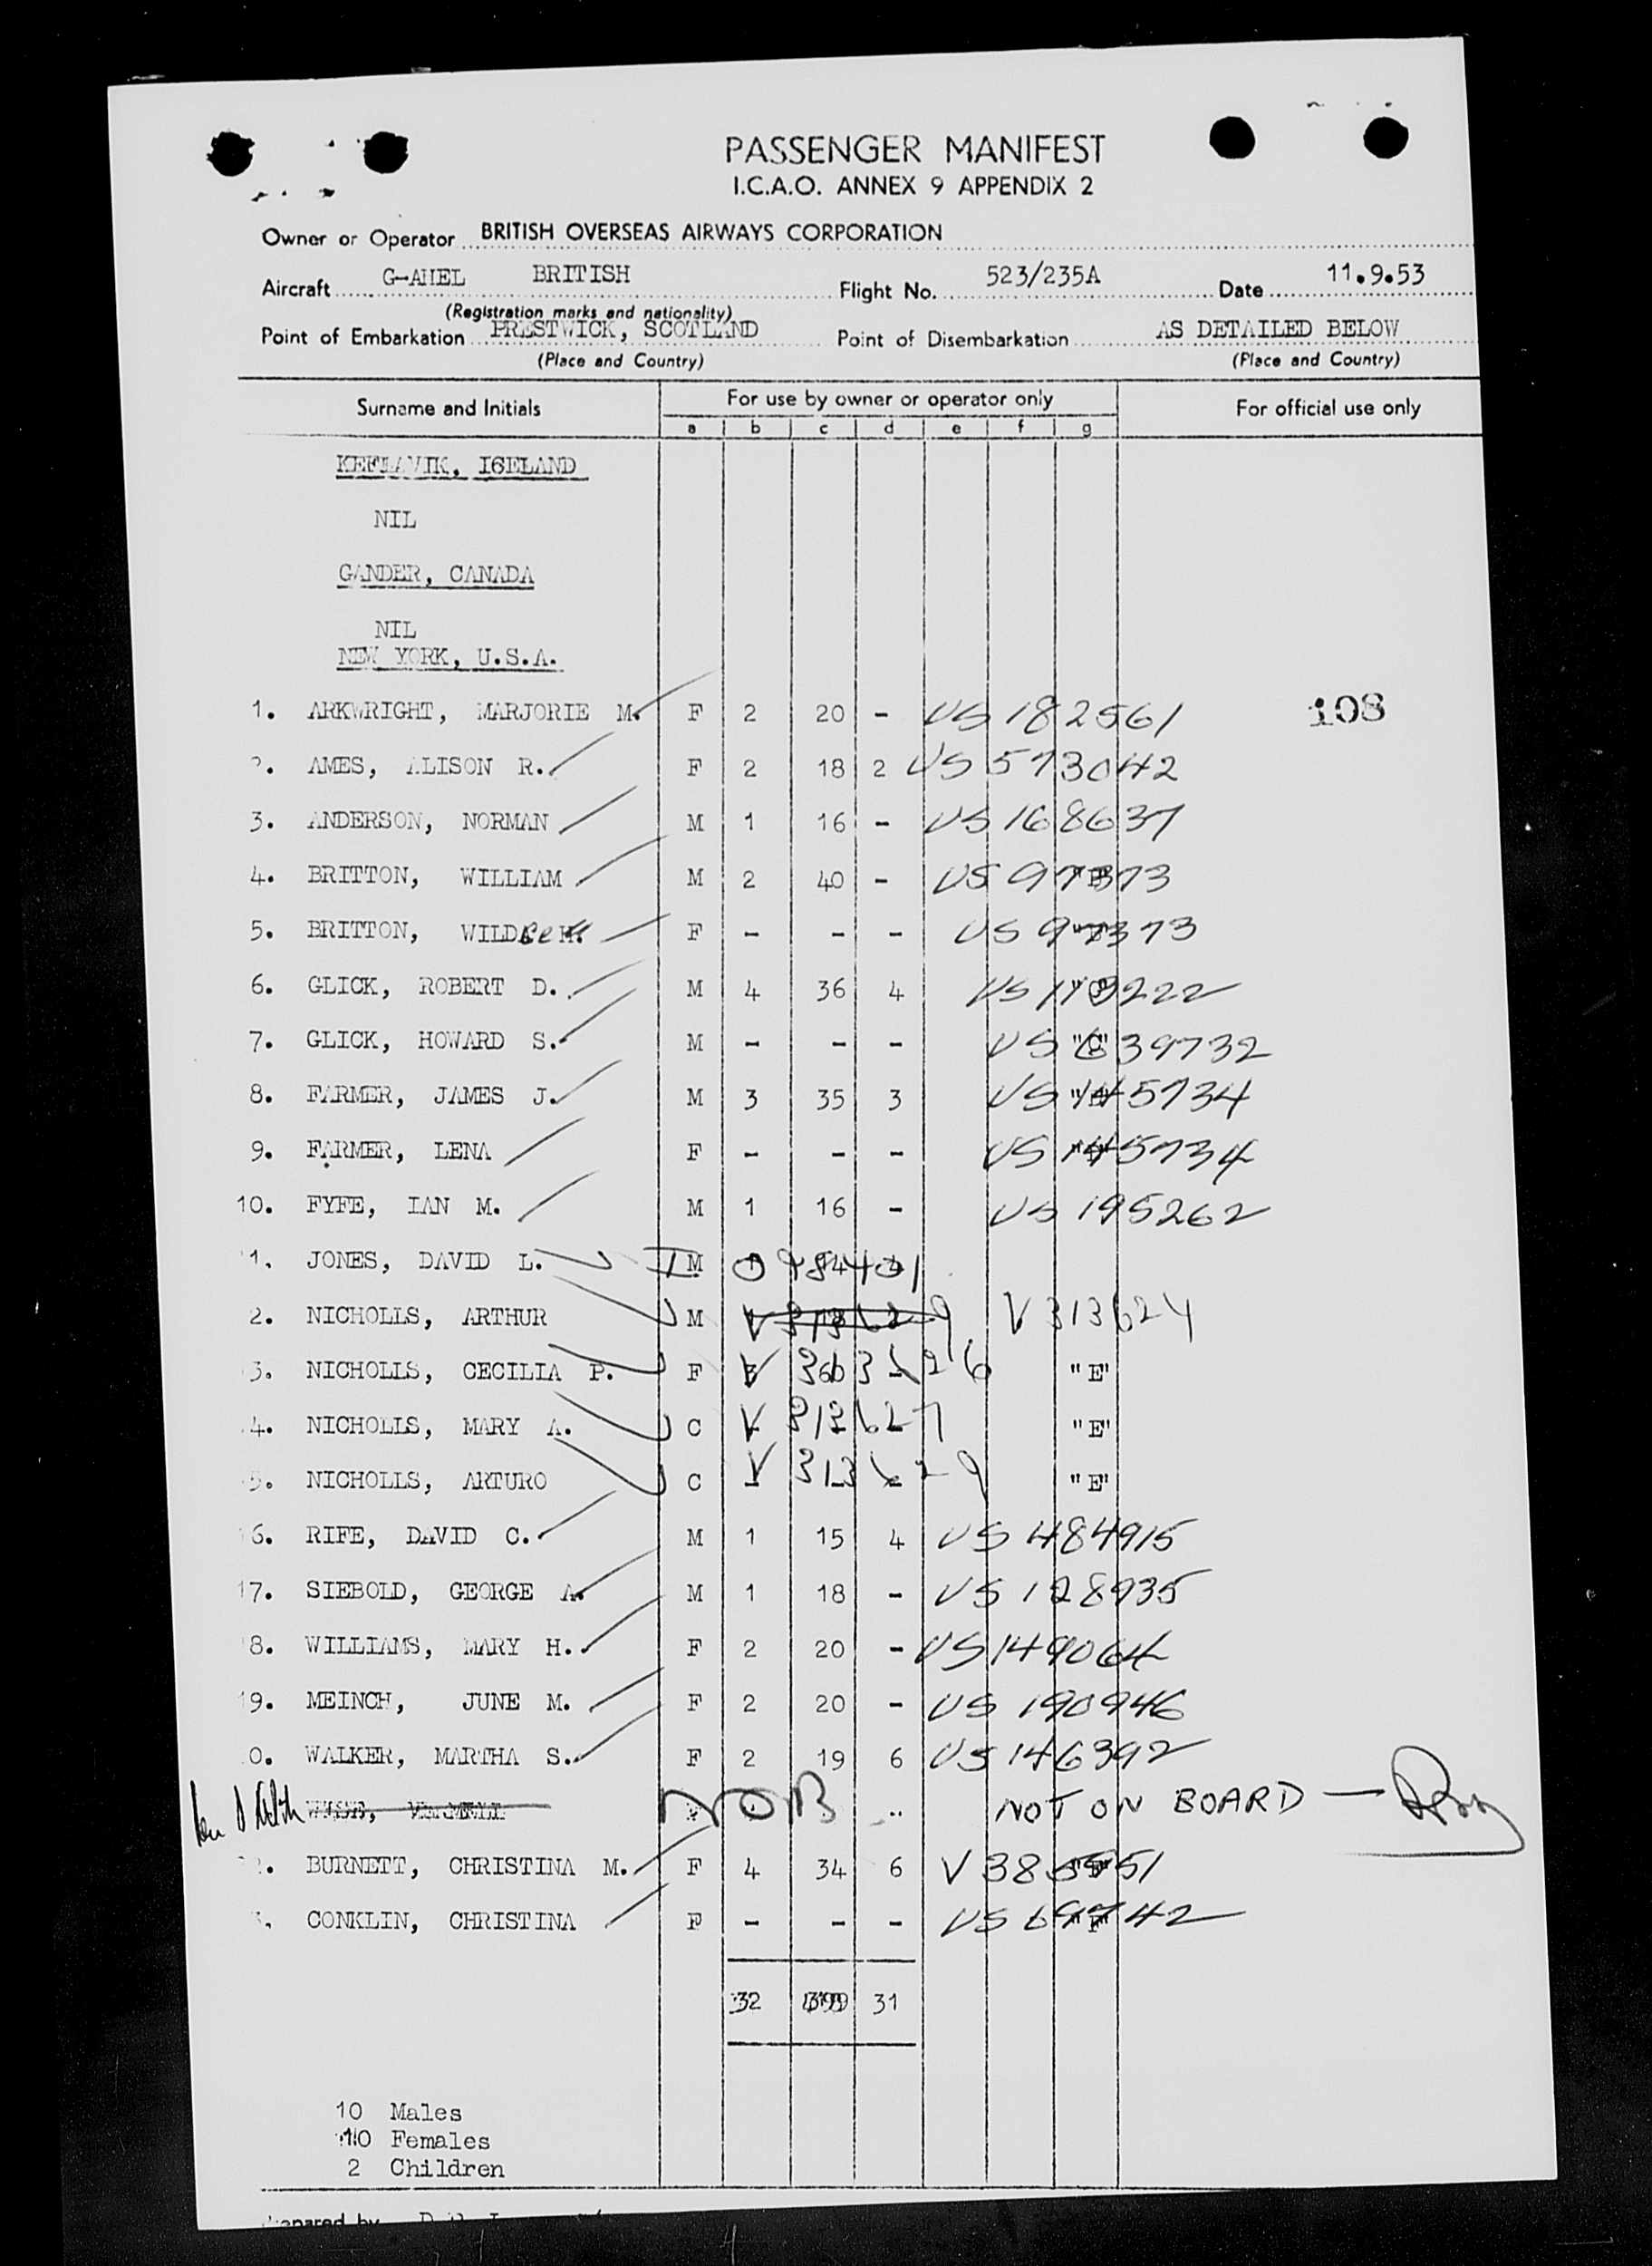 PASSENGER MANIFEST
I.C.A.O. ANNEX 9 APPENDIX 2
Owner or Operator BRITISH OVERSEAS AIRWAYS CORPORATION
Aircraft G-AHEL BRITISH Flight No. 523/235A Date 11.9.53
(Registration marks and nationality)
Point of Embarkation PRESTWICK, SCOTLAND Point of Disembarkation AS DETAILED BELOW
(Place and Country) (Place and Country)
Surname and Initials For use by owner or operator only For official use only
a b c d e f g
KEFLAVIK, ICELAND
NIL
GANDER, CANADA
NIL
NEW YORK, U.S.A.
1. ARKWRIGHT, MARJORIE M. F 2 20 - US 182561 108
2. AMES, ALISON R. F 2 18 2 US 573042
3. ANDERSON, NORMAN M 1 16 - US 168637
4. BRITTON, WILLIAM M 2 40 - US 97373
5. BRITTON, F - - - US 97373
6. GLICK, ROBERT D. M 4 36 4 US
7. GLICK, HOWARD S. M - - - US 639732
8. FARMER, JAMES J. M 3 35 3 US 145734
9. FARMER, LENA F - - - US 145734
10. FYFE, IAN M. M 1 16 - US 195262
11. JONES, DAVID L. M
2. NICHOLLS, ARTHUR M V 313629 V 313624
3. NICHOLLS, CECILIA P. F V "E"
4. NICHOLLS, MARY A. C V 313627 "E"
5. NICHOLLS, ARTURO C V 313629 "E"
16. RIFE, DAVID C. M 1 15 4 US 484915
17. SIEBOLD, GEORGE A. M 1 18 - US 128935
18. WILLIAMS, MARY H. F 2 20 - US 149064
19. MEINCH, JUNE M. F 2 20 - US 190946
0. WALKER, MARTHA S. F 2 19 6 US 146392
NOB NOT ON BOARD —
2. BURNETT, CHRISTINA M. F 4 34 6 V
3. CONKLIN, CHRISTINA F - - - US
32 31
10 Males
10 Females
2 Children